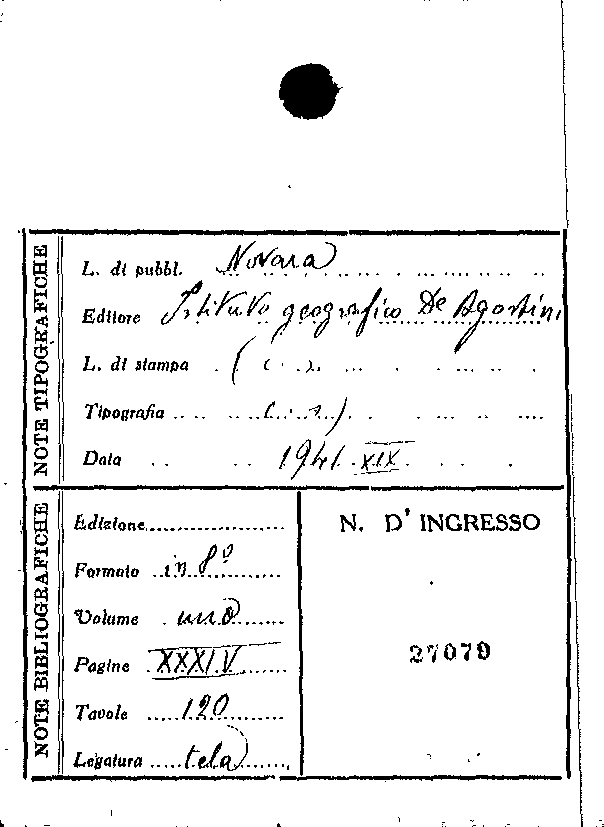 NOTE TIPOGRAFICHE
L. di pubbl. Novara
Editore Istituto geografico De Agostini
L. di stampa
Tipografia
Data 1941 XIX
NOTE BIBLIOGRAFICHE
Edizione
Formato in 8º
Volume uno
Pagine XXXIV
Tavole 120
Legatura tela
N. D' INGRESSO
27079